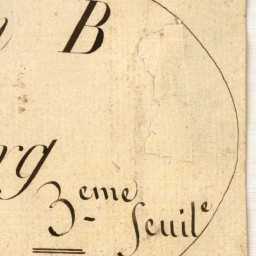 n B
rg
3.eme
feuil.e